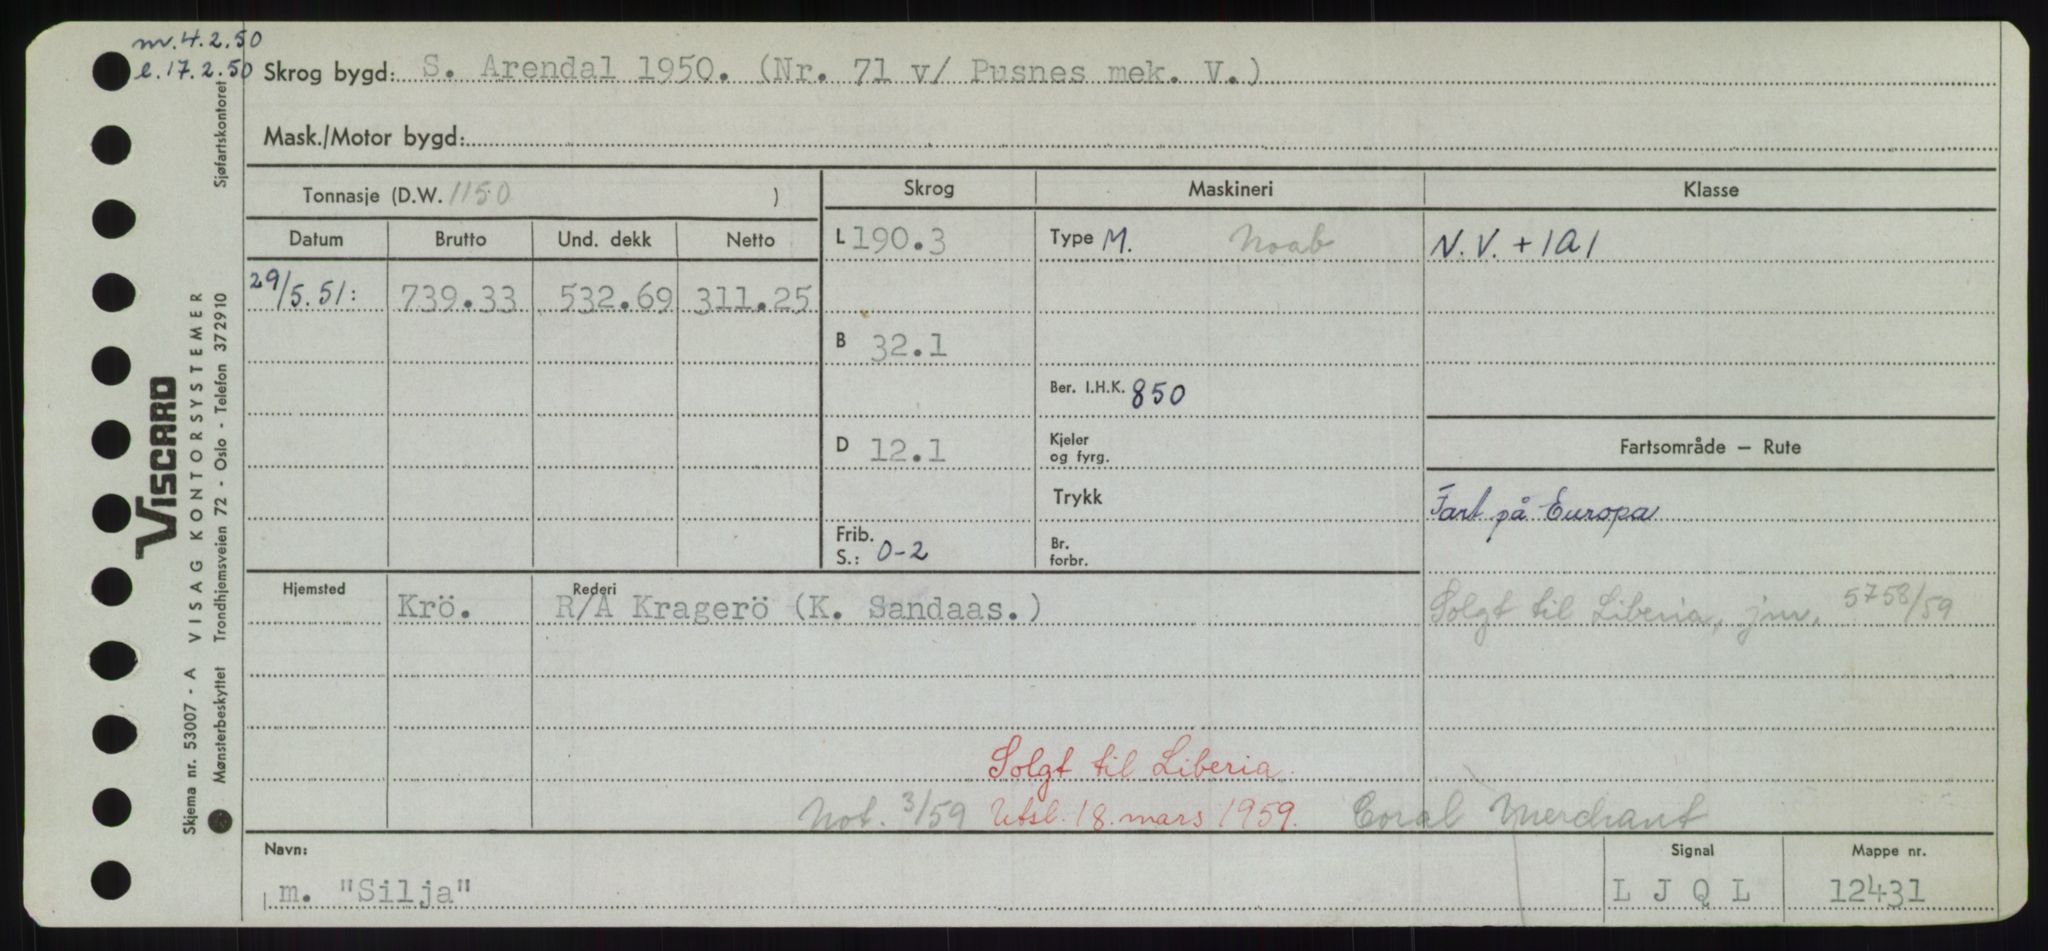 m.4.2.50
l.17.2.50
Skrog bygd: S. Arendal 1950. (Nr. 71 v/ Pusnes mek. V.)
Mask./Motor bygd:
Tonnasje (D.W. 1150 )
Skrog
Maskineri
Klasse
Datum Brutto Und. dekk Netto
L 190.3
Type M.
N.V. + 1A1
29/5.51: 739.33 532.69 311.25
B 32.1
Ber. I.H.K. 850
D 12.1
Kjeler
og fyrg.
Fartsområde — Rute
Trykk
Fart på Europa
Frib.
S.: 0-2
Br.
forbr.
Hjemsted Rederi
Krö. R/A Kragerö (K. Sandaas.)
Solgt til Liberia, jnr. 5758/59
Solgt til Liberia.
Not. 3/59 Utsl. 18. mars 1959. Coral Merchant
Navn: Signal Mappe nr.
m. "Silja" L J Q L 12431
VISCARD
Skjema nr. 53007 - A VISAG KONTORSYSTEMER
Mønsterbeskyttet Trondhjemsveien 72 - Oslo - Telefon 372910 Sjøfartskontoret